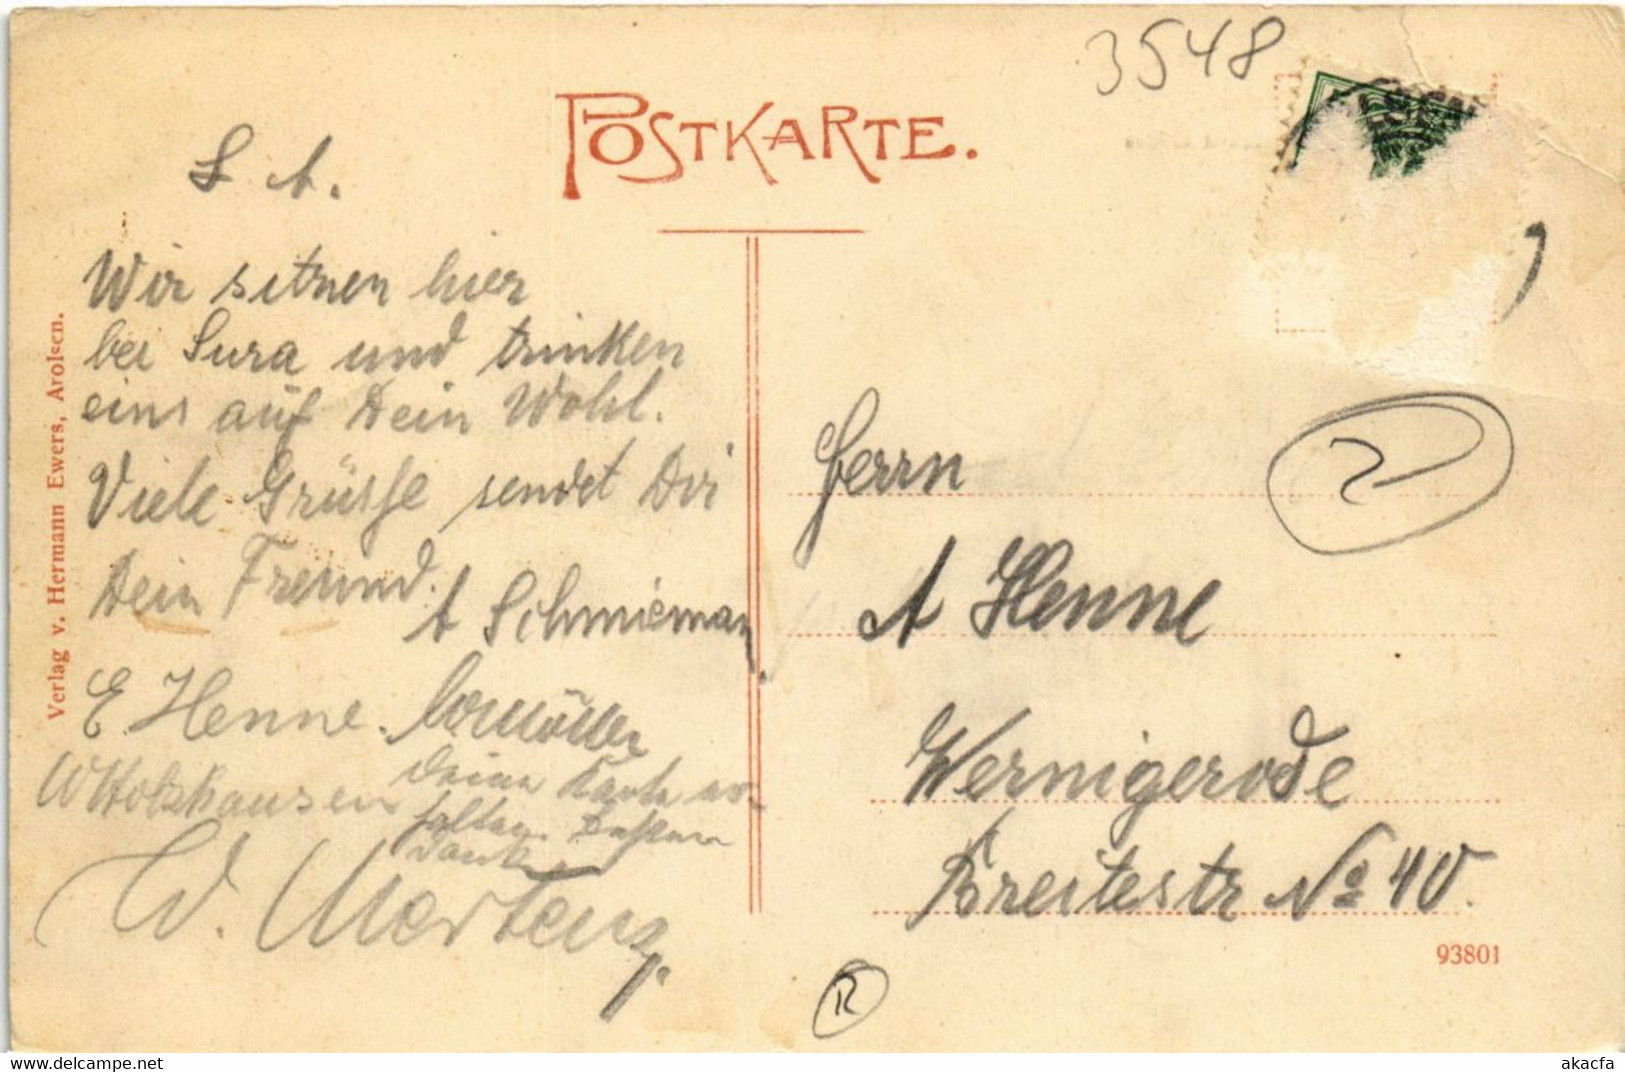 3548
POSTKARTE.
L A.
Wir sitzen hier
bei Sura und trinken
eins auf Dein Wohl.
Viele Grüsse sendet Dir
Dein Freund.
A Schmieman
E Henne.
W Holzhausen
Deine Karte er-
halten. Besten
Dank
W. Mertens
Herrn
A Henne
Wernigerode
Breitestr No 40.
93801
R
Verlag v. Hermann Ewers, Arolsen.
akacfa